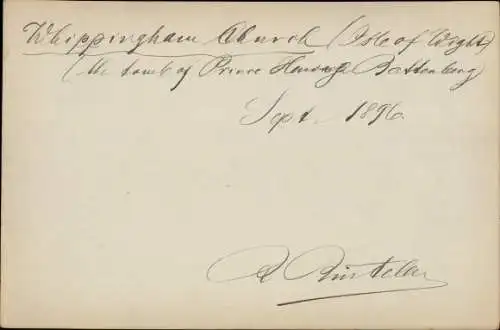 Whippingham Church (Isle of Wight)
(the tomb of Prince Henry Battenberg)
Sept. 1896.